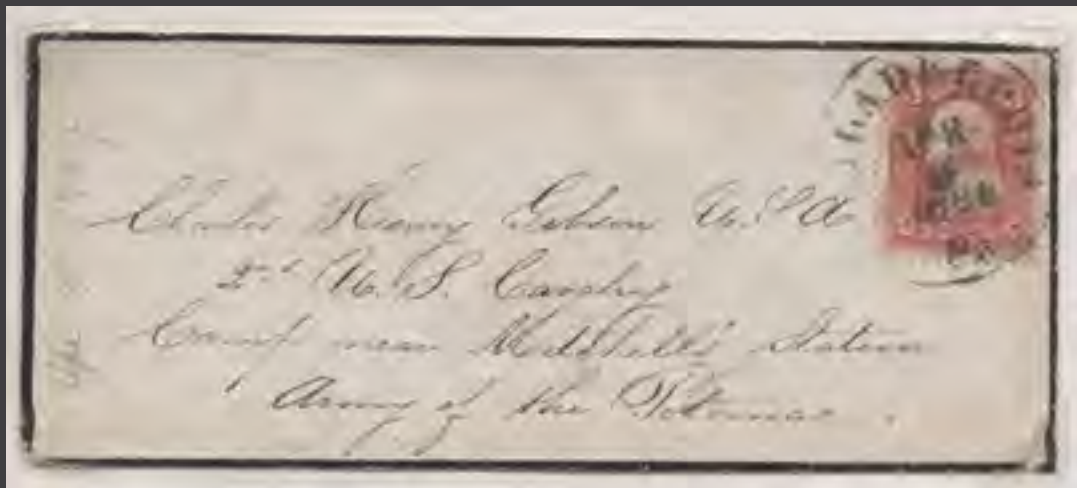 Charles Henry Gibson U.S.A
2d U.S. Cavalry
Camp near Mitchell's Station
Army of the Potomac.
APR
PA